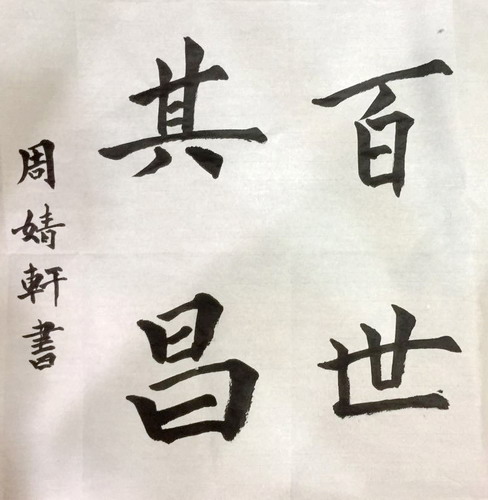 百世
其昌
周婧軒書